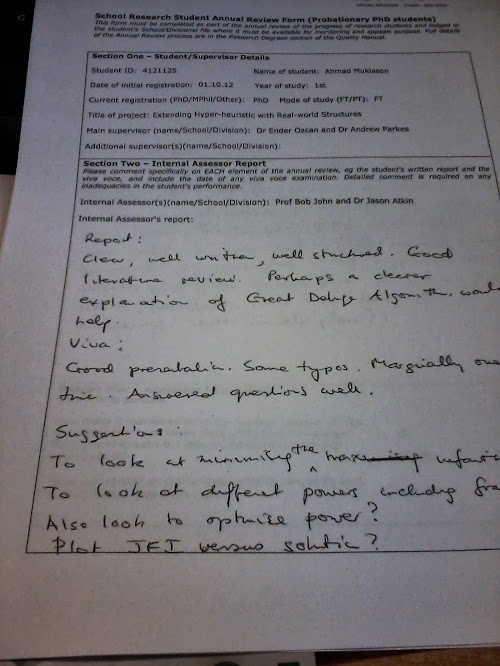 School Research Student Annual Review Form (Probationary PhD students)
This form must be completed as part of the annual review of the progress of research students and lodged in
the student's School/Divisional file where it must be available for monitoring and appeals purpose. Full details
of the Annual Review process are in the Research Degrees section of the Quality Manual.
Section One – Student/Supervisor Details
Student ID: 4121125 Name of student: Ahmad Muklason
Date of initial registration: 01.10.12 Year of study: 1st
Current registration (PhD/MPhil/Other): PhD Mode of study (FT/PT): FT
Title of project: Extending Hyper-heuristic with Real-world Structures
Main supervisor (name/School/Division): Dr Ender Ozcan and Dr Andrew Parkes
Additional supervisor(s)(name/School/Division):
Section Two – Internal Assessor Report
Please comment specifically on EACH element of the annual review, eg the student's written report and the
viva voce, and include the date of any viva voce examination. Detailed comment is required on any
inadequacies in the student's performance.
Internal Assessor(s)(name/School/Division): Prof Bob John and Dr Jason Atkin
Internal Assessor's report:
Report:
Clear, well written, well structured. Good
literature review. Perhaps a clearer
explanation of Great Deluge Algorithm would
help.
Viva:
Good presentation. Some typos. Marginally over
time. Answered questions well.
Suggestions:
To look at minimising the
To look at different powers including
Also look to optimise power?
Plot JFI versus solution?